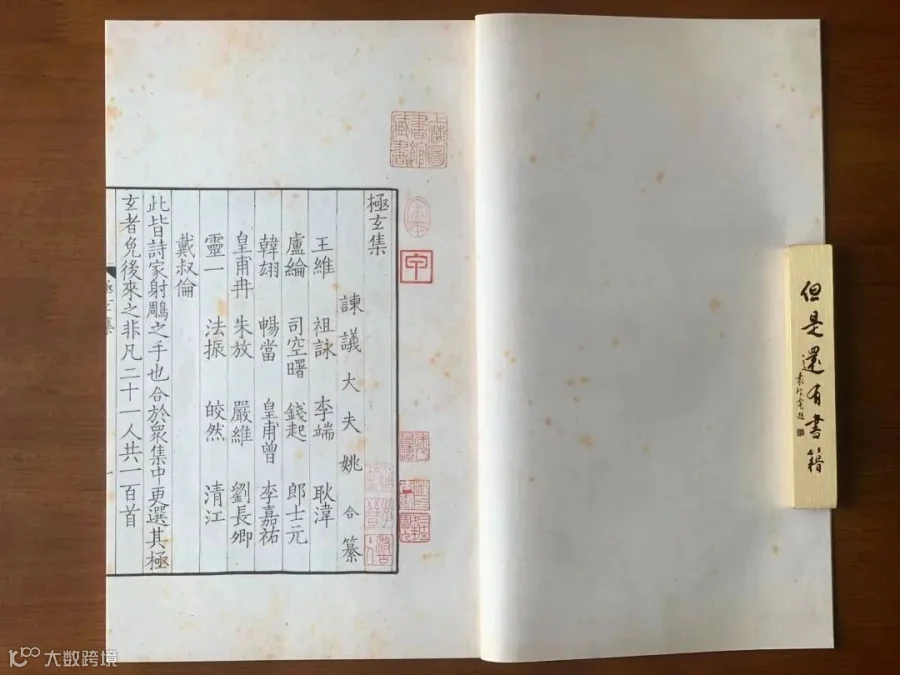 但是還有書籍
極玄集
諫議大夫姚合纂
王維 祖詠 李端 耿湋
盧綸 司空曙 錢起 郎士元
韓翃 暢當 皇甫曾 李嘉祐
皇甫冉 朱放 嚴維 劉長卿
靈一 法振 皎然 清江
戴叔倫
此皆詩家射鵰之手也合於衆集中更選其極
玄者免後來之非凡二十一人共一百首
上海圖書館藏書
大数跨境